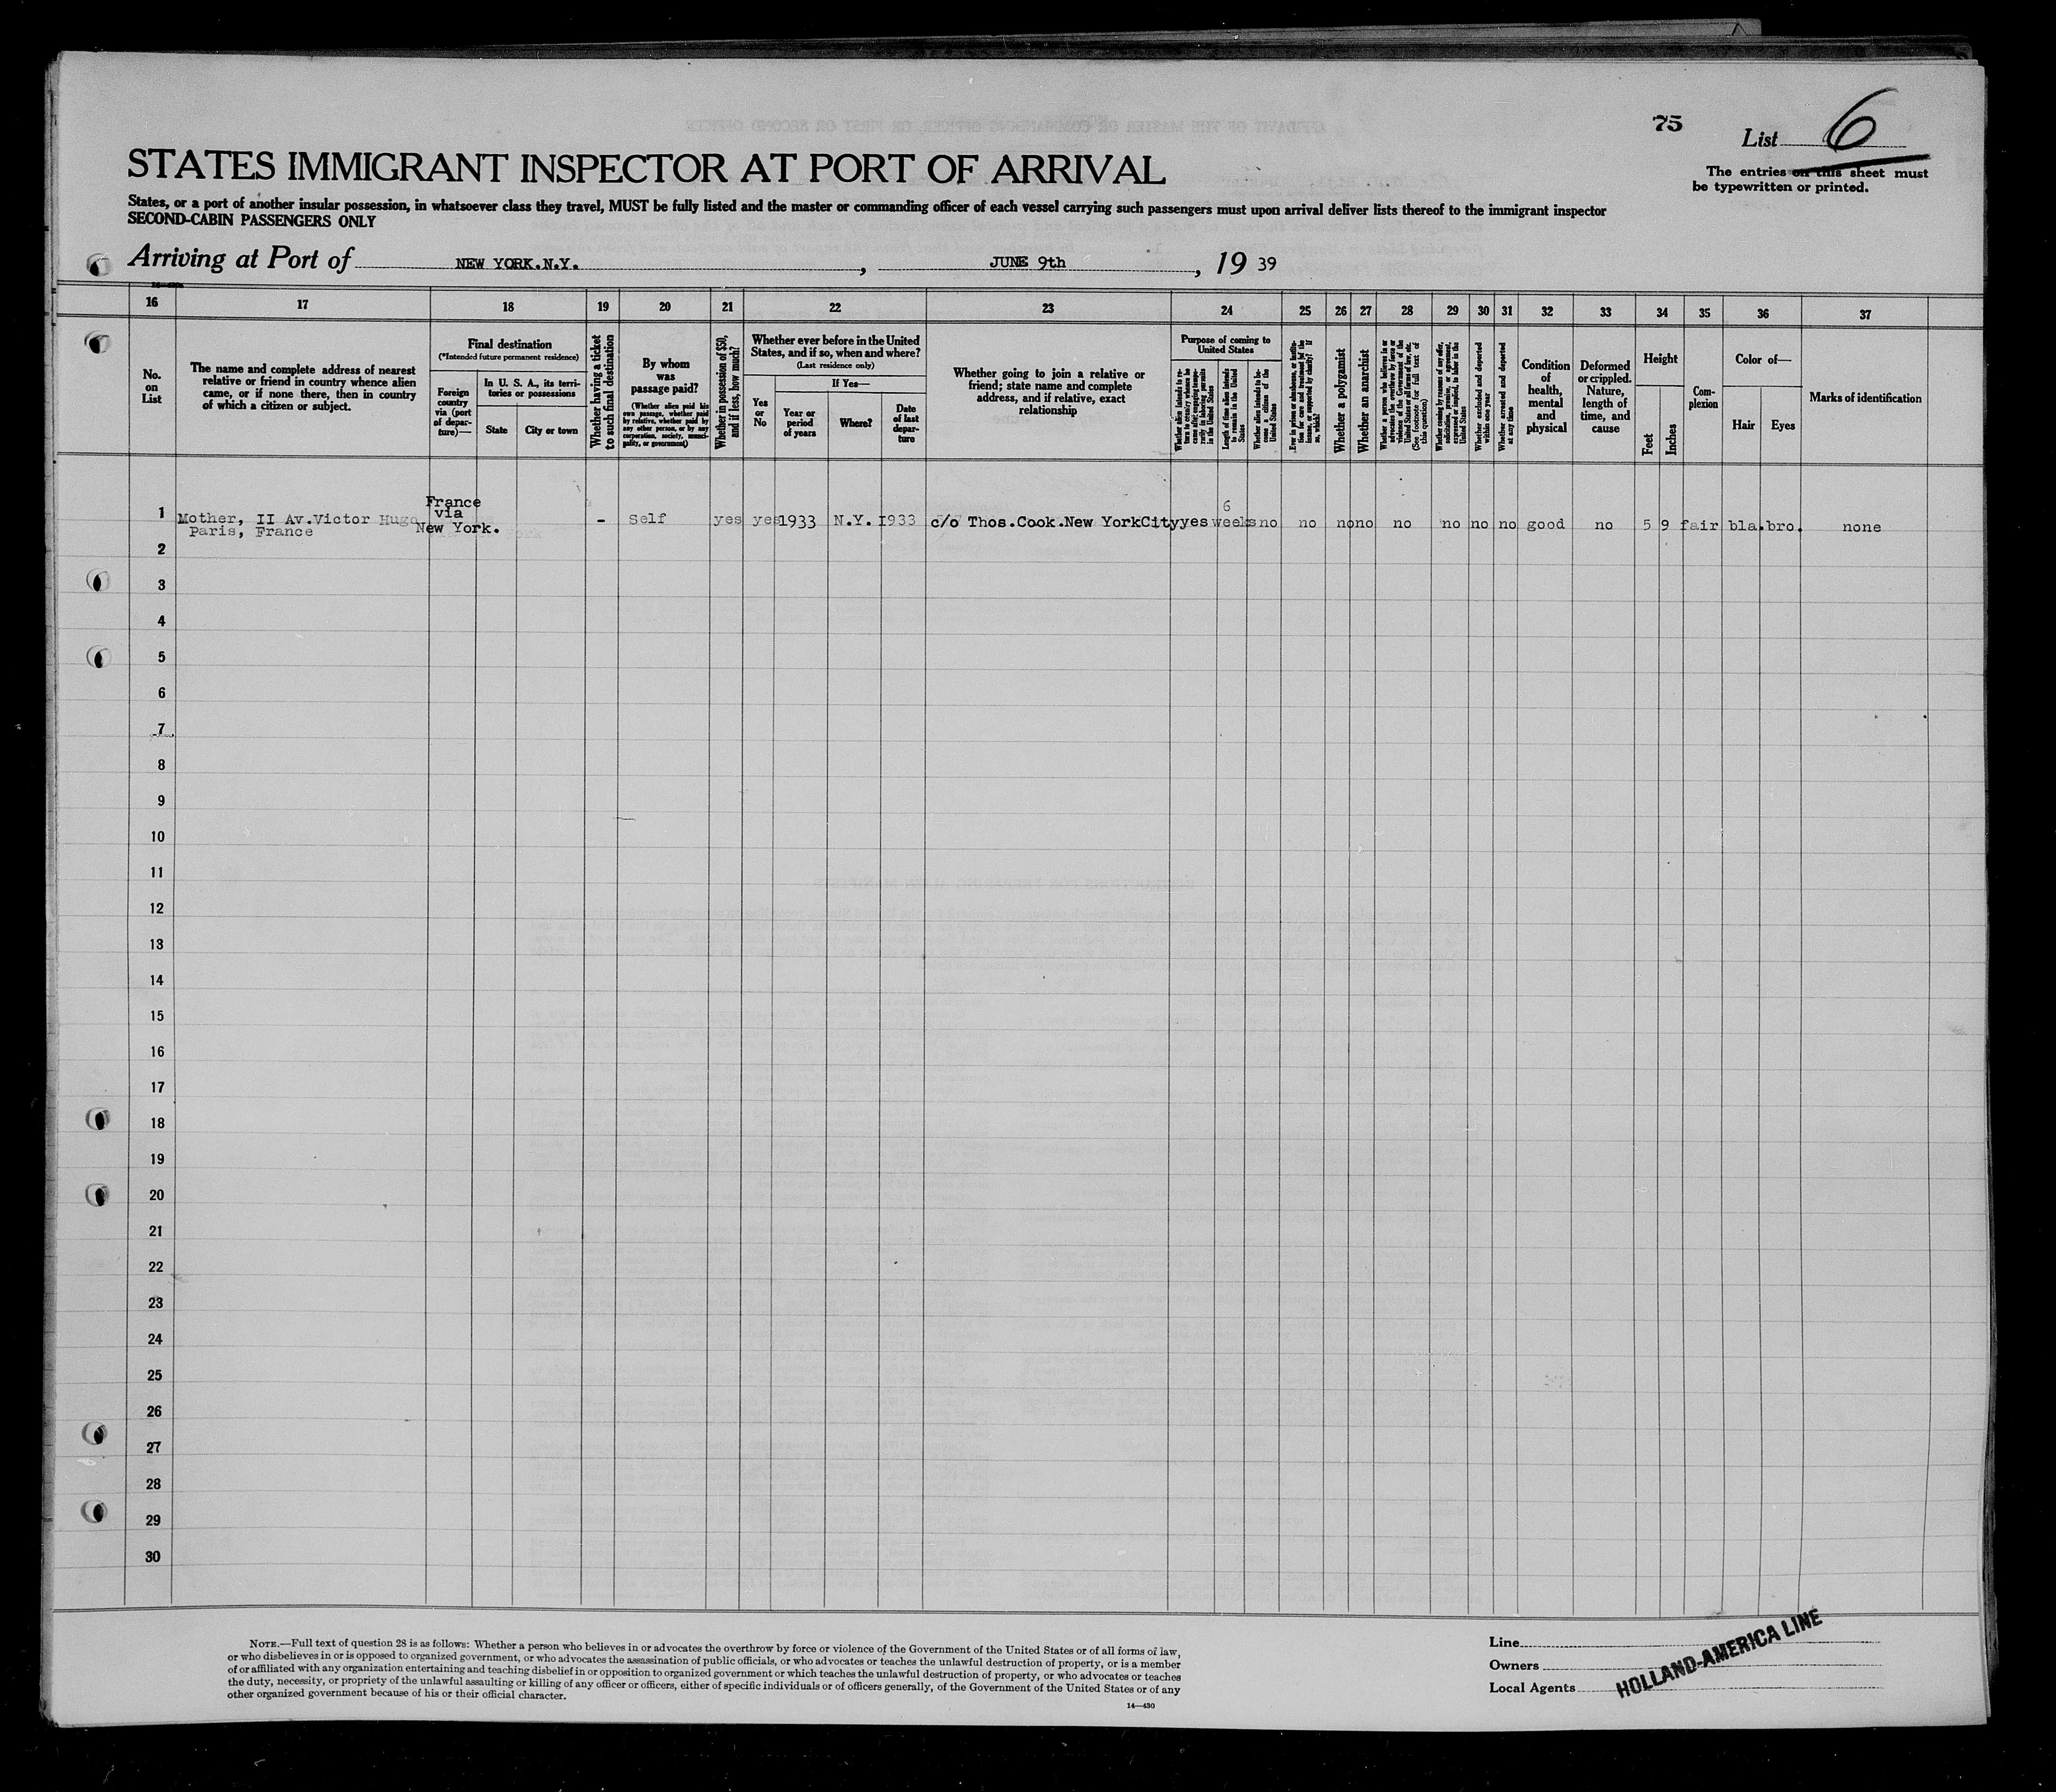 75
List 6
The entries on this sheet must
be typewritten or printed.
STATES IMMIGRANT INSPECTOR AT PORT OF ARRIVAL
States, or a port of another insular possession, in whatsoever class they travel, MUST be fully listed and the master or commanding officer of each vessel carrying such passengers must upon arrival deliver lists thereof to the immigrant inspector
SECOND-CABIN PASSENGERS ONLY
Arriving at Port of NEW YORK.N.Y. , JUNE 9th , 19 39
16 17 18 19 20 21 22 23 24 25 26 27 28 29 30 31 32 33 34 35 36 37
No.
on
List
The name and complete address of nearest
relative or friend in country whence alien
came, or if none there, then in country
of which a citizen or subject.
Final destination
(*Intended future permanent residence)
Foreign
country
via (port
of depar-
ture)—
In U. S. A., its terri-
tories or possessions
State
City or town
Whether having a ticket
to such final destination
By whom
was
passage paid?
(Whether alien paid his
own passage, whether paid
by relative, whether paid by
any other person, or by any
corporation, society, munici-
pality, or government)
Whether in possession of $50,
and if less, how much?
Whether ever before in the United
States, and if so, when and where?
(Last residence only)
Yes
or
No
If Yes—
Year or
period
of years
Where?
Date
of last
depar-
ture
Whether going to join a relative or
friend; state name and complete
address, and if relative, exact
relationship
Purpose of coming to
United States
Length of time alien intends
to remain in the United
States
Whether alien intends to be-
come a citizen of the
United States
Whether a polygamist
Whether an anarchist
Whether a person who believes in or
advocates the overthrow by force or
violence of the Government of the
United States or all forms of law, etc.
(See footnote for full text of
this question)
Whether coming by reasons of any offer,
solicitation, promise, or agreement,
expressed or implied, to labor in the
United States
Whether excluded and deported
within one year
Whether arrested and deported
at any time
Condition
of
health,
mental
and
physical
Deformed
or crippled.
Nature,
length of
time, and
cause
Height
Feet
Inches
Com-
plexion
Color of—
Hair
Eyes
Marks of identification
1 Mother, II Av.Victor Hugo
Paris, France
France
via
New York.
- Self yes yes 1933 N.Y. 1933 c/o Thos.Cook.New YorkCity yes
6
weeks no no no no no no no no good no 5 9 fair bla. bro. none
2
3
4
5
6
7
8
9
10
11
12
13
14
15
16
17
18
19
20
21
22
23
24
25
26
27
28
29
30
NOTE.—Full text of question 28 is as follows: Whether a person who believes in or advocates the overthrow by force or violence of the Government of the United States or of all forms of law,
or who disbelieves in or is opposed to organized government, or who advocates the assassination of public officials, or who advocates or teaches the unlawful destruction of property, or is a member
of or affiliated with any organization entertaining and teaching disbelief in or opposition to organized government or which teaches the unlawful destruction of property, or who advocates or teaches
the duty, necessity, or propriety of the unlawful assaulting or killing of any officer or officers, either of specific individuals or of officers generally, of the Government of the United States or of any
other organized government because of his or their official character.
14—430
Line
Owners
Local Agents
HOLLAND-AMERICA LINE